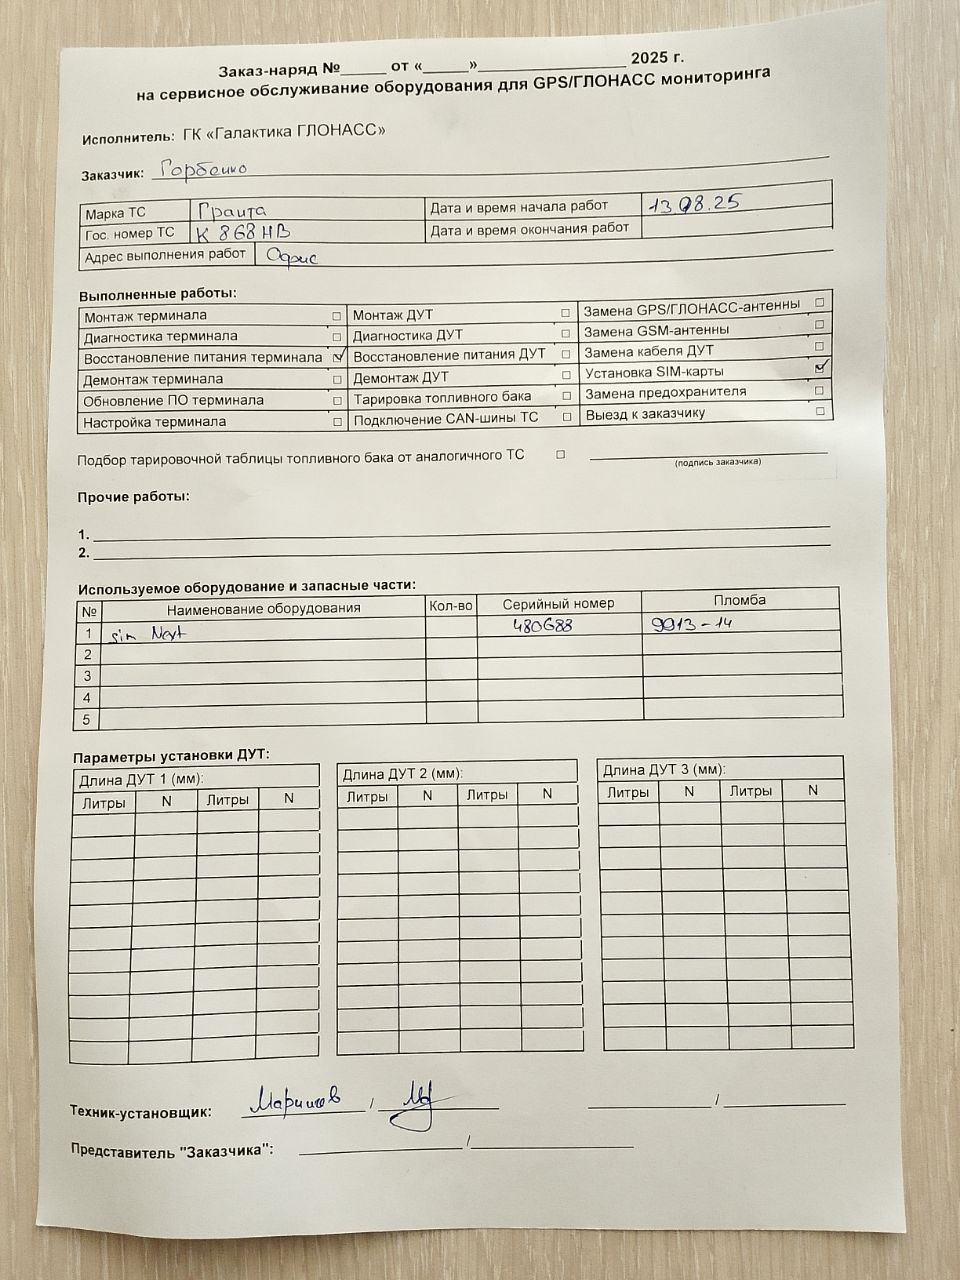 Заказ-наряд №_____ от «_____»___________________ 2025 г.
на сервисное обслуживание оборудования для GPS/ГЛОНАСС мониторинга
Исполнитель: ГК «Галактика ГЛОНАСС»
Заказчик: Горбенко
Марка ТС Гранта Дата и время начала работ 13.08.25
Гос. номер ТС К 868 НВ Дата и время окончания работ
Адрес выполнения работ Офис
Выполненные работы:
Монтаж терминала ☐ Монтаж ДУТ ☐ Замена GPS/ГЛОНАСС-антенны ☐
Диагностика терминала ☐ Диагностика ДУТ ☐ Замена GSM-антенны ☐
Восстановление питания терминала ☑ Восстановление питания ДУТ ☐ Замена кабеля ДУТ ☐
Демонтаж терминала ☐ Демонтаж ДУТ ☐ Установка SIM-карты ☑
Обновление ПО терминала ☐ Тарировка топливного бака ☐ Замена предохранителя ☐
Настройка терминала ☐ Подключение CAN-шины ТС ☐ Выезд к заказчику ☐
Подбор тарировочной таблицы топливного бака от аналогичного ТС ☐
(подпись заказчика)
Прочие работы:
1.
2.
Используемое оборудование и запасные части:
№ Наименование оборудования Кол-во Серийный номер Пломба
1 sim Next 480688 9913-14
2
3
4
5
Параметры установки ДУТ:
Длина ДУТ 1 (мм): Длина ДУТ 2 (мм): Длина ДУТ 3 (мм):
Литры N Литры N Литры N Литры N Литры N Литры N
Техник-установщик: / /
Представитель "Заказчика": /